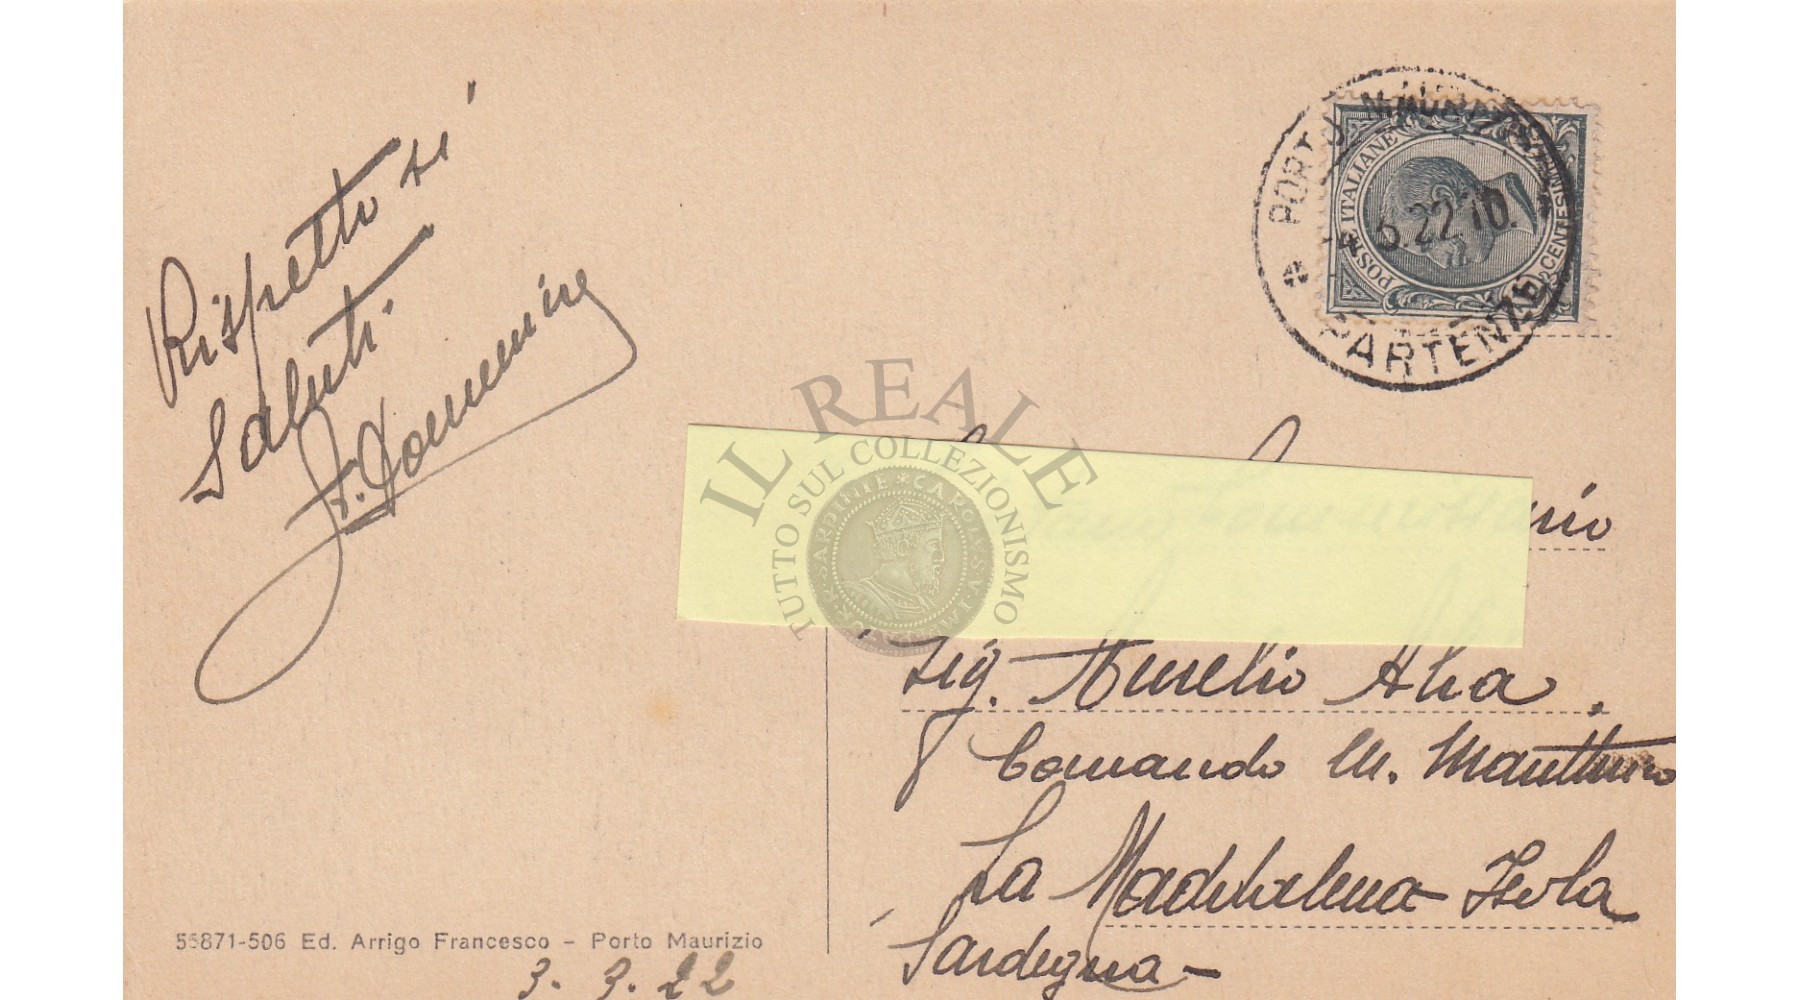 Rispettosi
Saluti
PORTO MAURIZIO
22.10
PARTENZE
POSTE ITALIANE
CENTESIMI
IL REALE
TUTTO SUL COLLEZIONISMO
Sig. Aurelio
Comando M. Marittimo
La Maddalena Isola
Sardegna
56871-506 Ed. Arrigo Francesco - Porto Maurizio
3. 3. 22